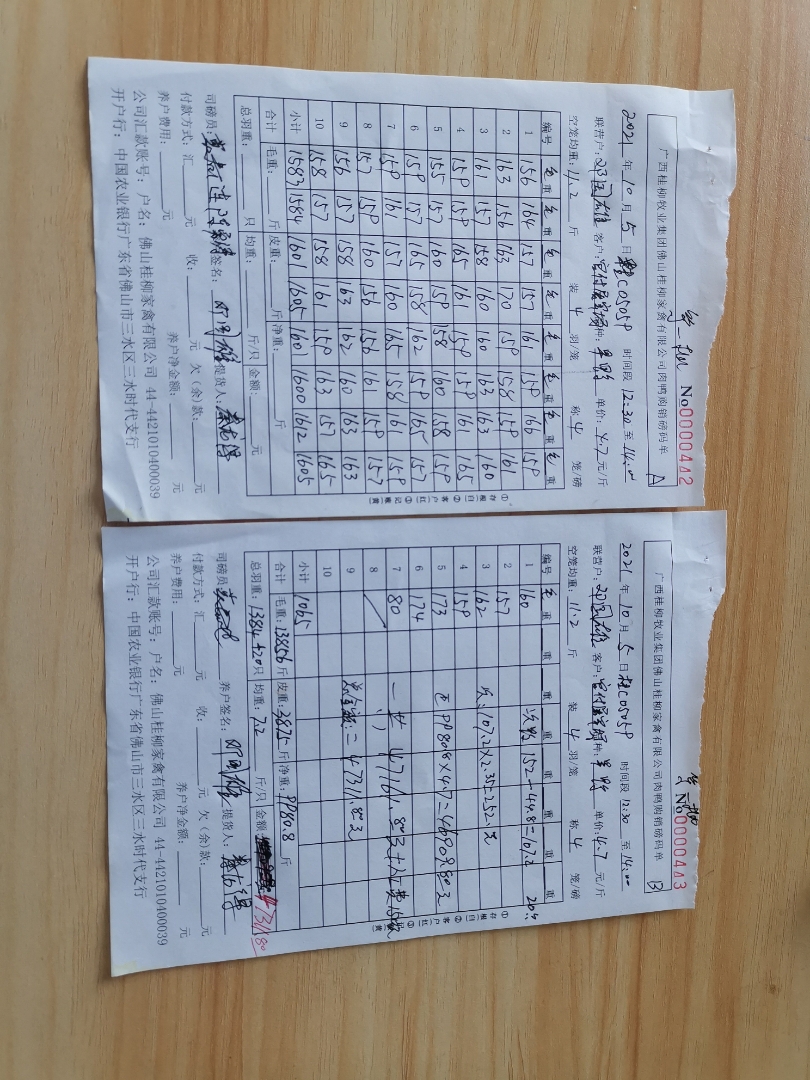 第一批 No0000442
广西桂柳牧业集团佛山桂柳家禽有限公司肉鸭购销磅码单 A
2021 年 10 月 5 日 桂C0505P 时间段 12:30 至 14:00
联营户: 客户: 种: 单价: 4.7 元/斤
空笼均重: 11.2 斤 装 4 羽/笼 称 4 笼/磅
编号 毛重 毛重 毛重 毛重 毛重 毛重 毛重 毛重
1 156 164 157 157 161 159 166 159
2 163 156 163 170 159 158 159 161
3 161 157 158 160 160 163 163 160
4 159 159 165 161 159 159 161 165
5 155 157 160 159 158 160 158 159
6 159 157 165 158 162 159 165 157
7 159 161 157 160 165 158 161 159
8 157 159 160 156 156 161 159 157
9 156 157 158 163 162 160 163 163
10 158 157 158 161 159 163 157 165
小计 1583 1584 1601 1605 1601 1600 1612 1605
合计 毛重: 斤 皮重: 斤 净重: 斤
总羽重: 只 均重: 斤/只 金额: 元
司磅员: 养户签名: 提货人:
付款方式: 汇 收: 元 欠(余)款: 元
养户费用: 元 养户净金额: 元
公司汇款账号: 户名: 佛山桂柳家禽有限公司 44-442101040003９
开户行: 中国农业银行广东省佛山市三水区三水时代支行
①存根(白) ②客户(红) ③记账(黄)
第一批 No0000443
广西桂柳牧业集团佛山桂柳家禽有限公司肉鸭购销磅码单 B
2021 年 10 月 5 日 桂C0505P 时间段 12:30 至 14:00
联营户: 客户: 种: 单价: 4.7 元/斤
空笼均重: 11.2 斤 装 4 羽/笼 称 4 笼/磅
编号 毛重 重 重 重 重 重 重 重
1 160 次鸭 152-44.8=107.2 20只
2 157
3 162 次: 107.2×2.35=252元
4 159
5 173 正 9980.8×4.7=46909.8元
6 174
7 80 一共 47161.8元
8
9 总金额: =47311.8元
10
小计 1065
合计 毛重: 13856 斤 皮重: 3875 斤 净重: 9980.8 斤
总羽重: 1384+20 只 均重: 7.2 斤/只 金额: 47311.80
司磅员: 养户签名: 提货人:
付款方式: 汇 收: 元 欠(余)款: 元
养户费用: 元 养户净金额: 元
公司汇款账号: 户名: 佛山桂柳家禽有限公司 44-442101040003９
开户行: 中国农业银行广东省佛山市三水区三水时代支行
①存根(白) ②客户(红) ③记账(黄)